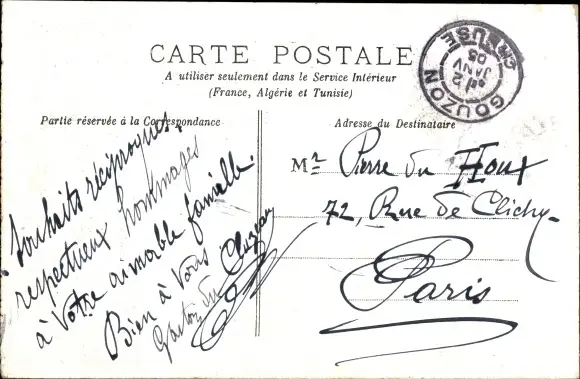 CARTE POSTALE
A utiliser seulement dans le Service Intérieur
(France, Algérie et Tunisie)
Partie réservée à la Correspondance
Souhaits réciproques,
respectueux hommages
à Votre aimable famille.
Bien à Vous
Gaston du Cluzeau
Adresse du Destinataire
Mr Pierre du Houx
72, Rue de Clichy
Paris
GOUZON
CREUSE
12
JANV
05